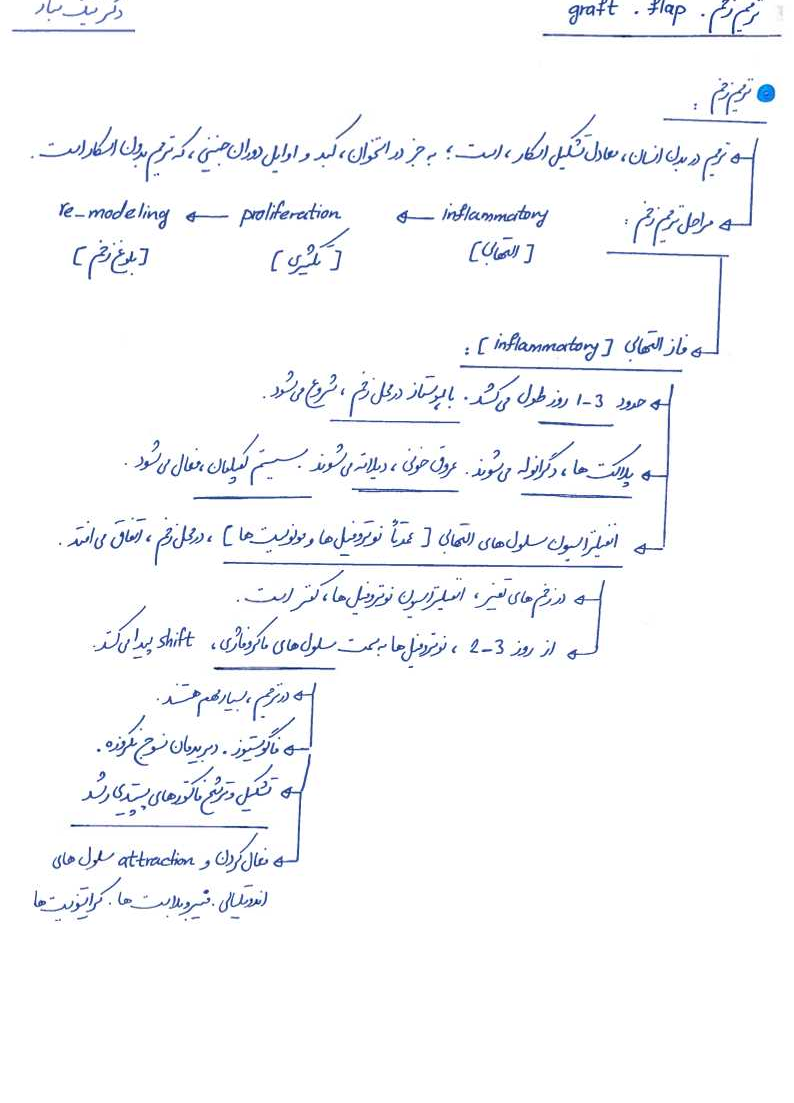 ترمیم زخم . graft . flap
دکتر نیک نیاز
ترمیم زخم :
ترمیم در بدن انسان، معادل تشکیل اسکار ، است ؛ به جز در استخوان ، کبد و اوایل دوران جنینی ، که ترمیم بدون اسکار است .
مراحل ترمیم زخم : inflammatory ← proliferation ← re-modeling
[ التهابی ] [ تکثیری ] [ بلوغ زخم ]
فاز التهابی [ inflammatory ] :
حدود 3-1 روز طول می‌کشد . با هموستاز در محل زخم ، شروع می‌شود .
پلاکت ها ، دگرانوله می‌شوند . عروق خونی ، دیلاته می‌شوند . سیستم کمپلمان ، فعال می‌شود .
انفیلتراسیون سلول های التهابی [ عمدتاً نوتروفیل ها و مونوسیت ها ] ، در محل زخم ، اتفاق می افتد .
در زخم های تمیز ، انفیلتراسیون نوتروفیل ها ، کمتر است .
از روز 3-2 ، نوتروفیل ها به سمت سلول های ماکروفاژی ، shift پیدا می‌کند .
در ترمیم ، بسیار مهم هستند .
فاگوسیتوز . دبریدمان نسوج نکروزه .
تشکیل و ترشح فاکتورهای پپتیدی رشد
فعال کردن و attraction سلول های
اندوتلیالی . فیبروبلاست ها . کراتینوسیت ها